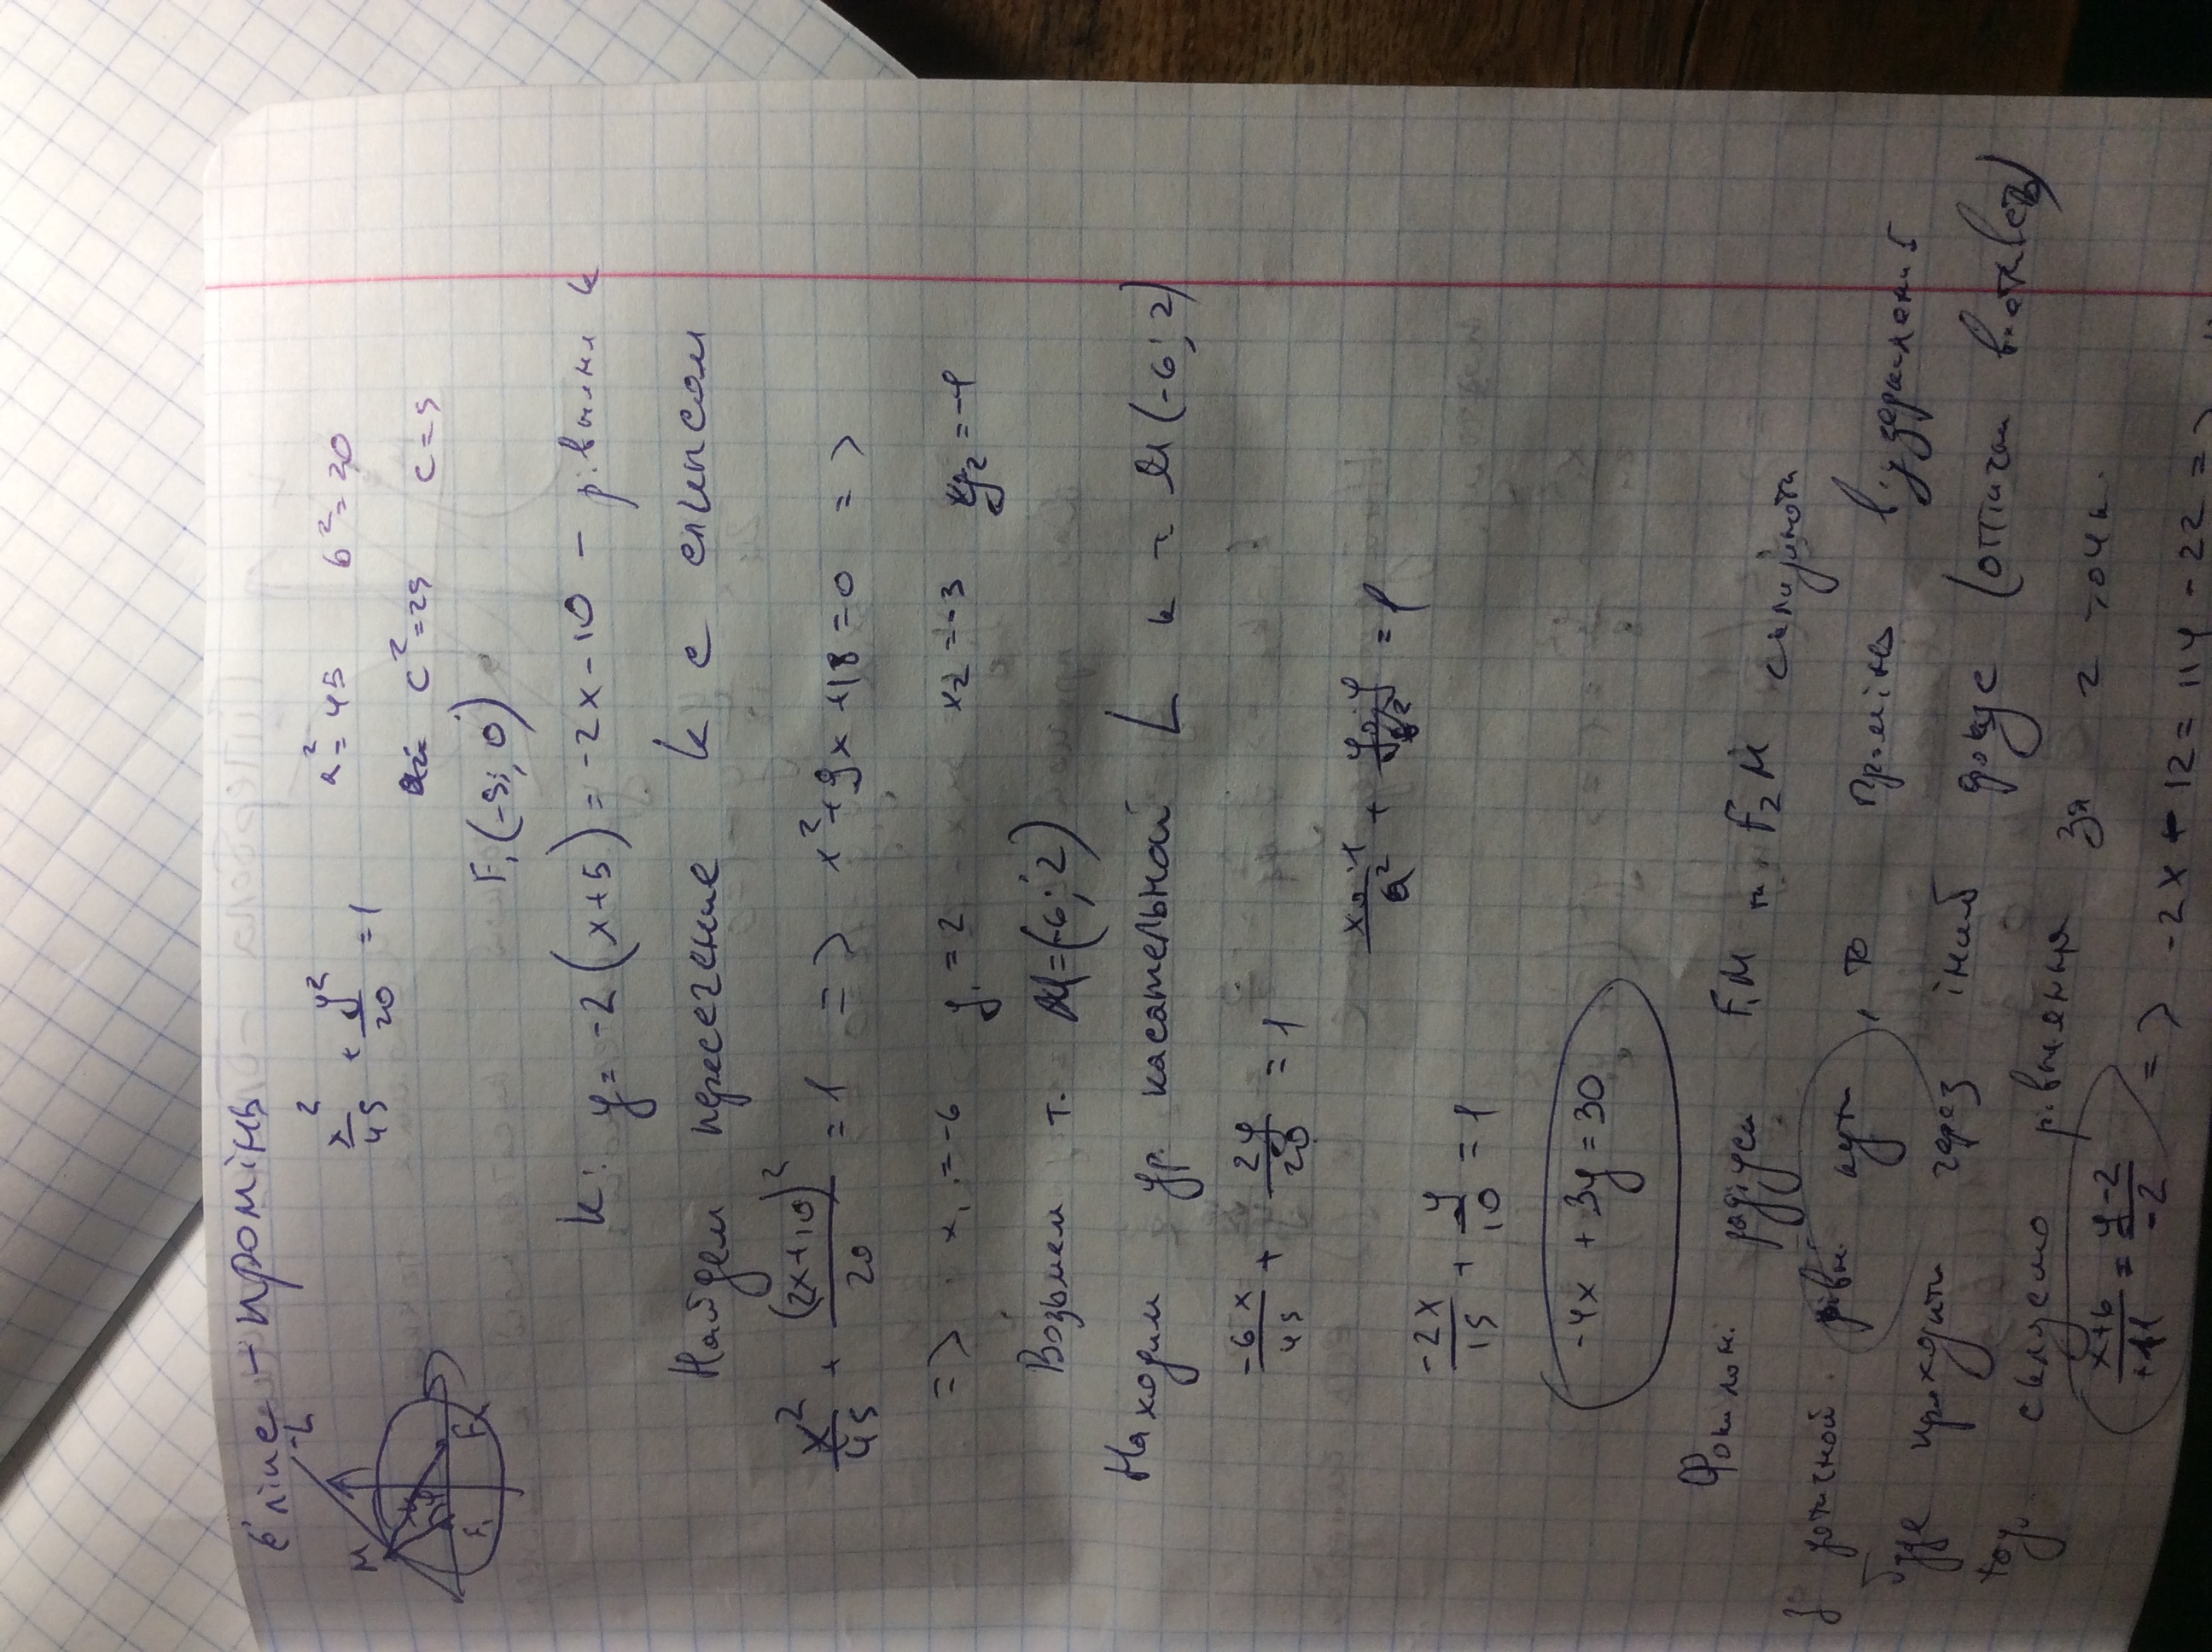 Еліпс – промінь
L
M
F₁ F₂
x²/45 + y²/20 = 1 a² = 45 b² = 20
c² = 25 c = 5
F₁(-5; 0)
k: y = -2(x+5) = -2x-10 – рівняня k
Найдем пересечение k с елипсом
x²/45 + (2x+10)²/20 = 1 => x²+9x+18=0 =>
=> x₁ = -6 y₁ = 2 x₂ = -3 y₂ = -4
Возьмем т. M=(-6; 2)
Находим ур. касательной L к т M(-6; 2)
-6x/45 + 2y/20 = 1
x₀·x/a² + y₀·y/b² = 1
-2x/15 + y/10 = 1
-4x + 3y = 30
Фокальні радіуси F₁M та F₂M складають
З дотичной рівні кути, то промінь відзеркалений
буде проходити через інший фокус (оптична властивість)
тоді складемо рівняння за 2 точк.
x+6/+11 = y-2/-2 => -2x - 12 = 11y - 22 =>